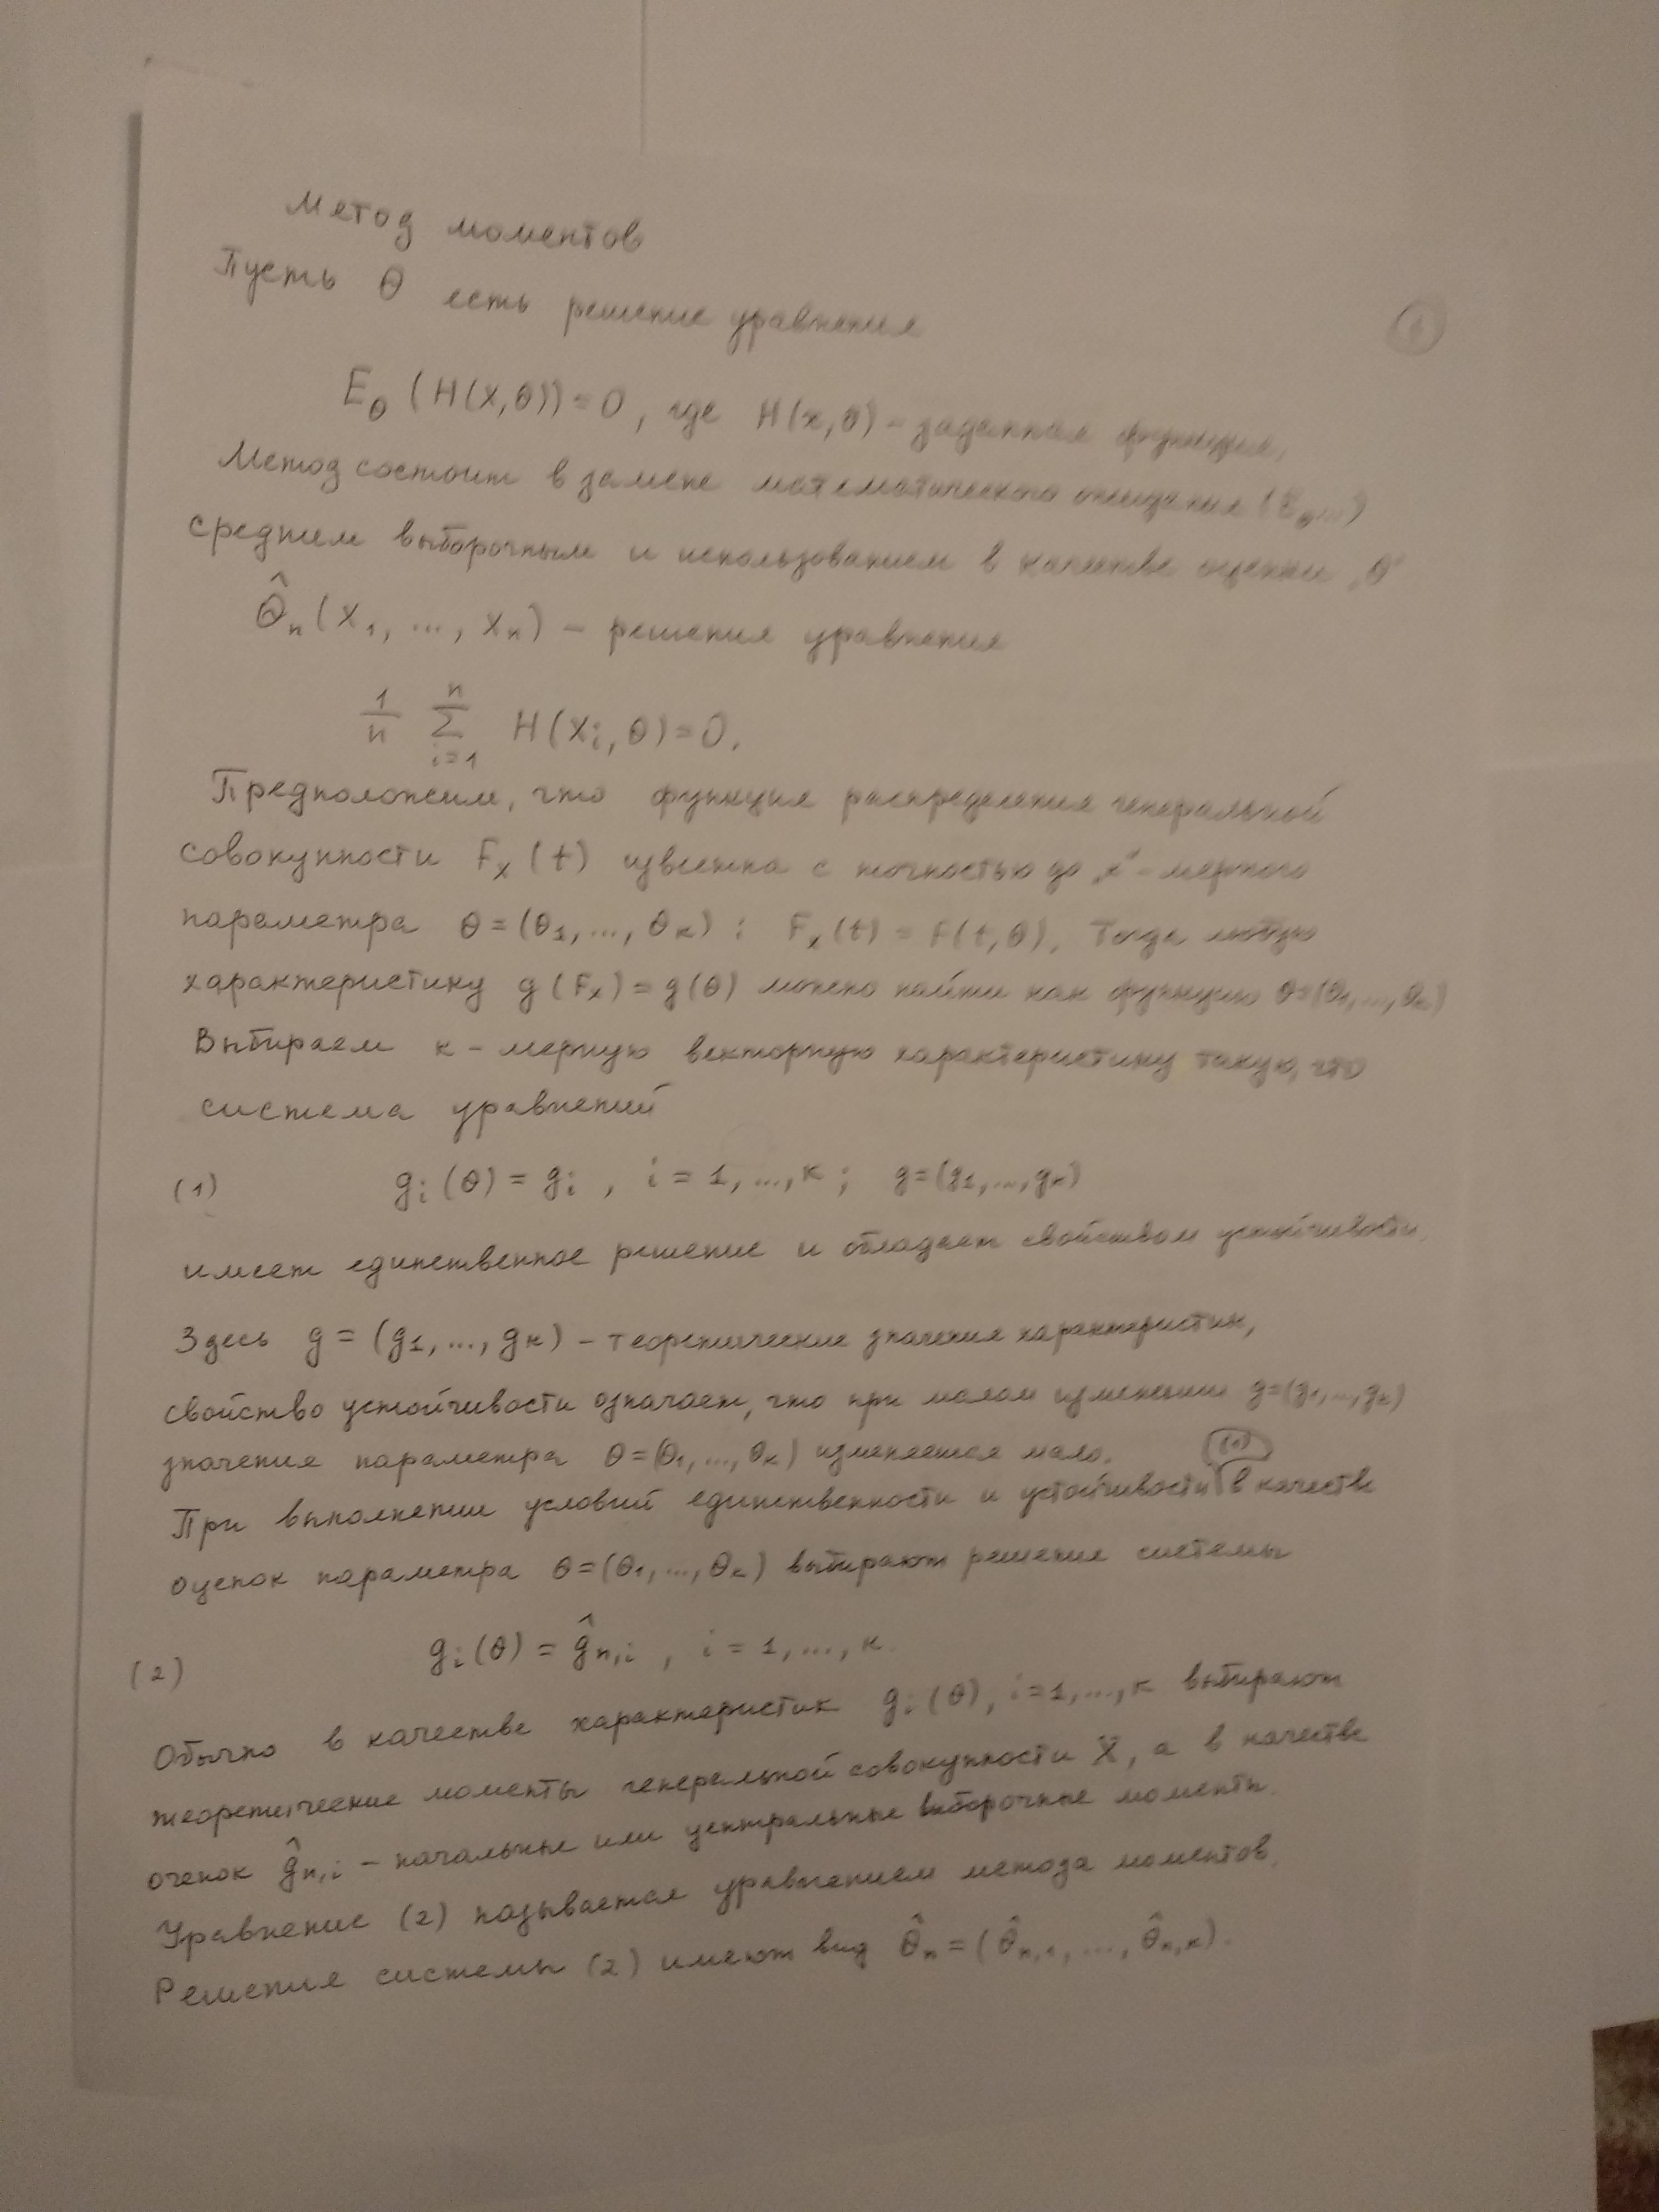 Метод моментов
Пусть θ есть решение уравнения
E_θ (H(X,θ)) = 0, где H(x,θ) – заданная функция,
Метод состоит в замене математического ожидания (E_θ...)
средним выборочным и использованием в качестве оценки „θ"
θ̂_n (X_1, ..., X_n) – решения уравнения
1/n Σ_{i=1}^{n} H(X_i, θ) = 0.
Предположим, что функция распределения генеральной
совокупности F_X (t) известна с точностью до „к"-мерного
параметра θ = (θ_1, ..., θ_к) : F_X (t) = F(t, θ). Тогда любую
характеристику g (F_X) = g(θ) можно найти как функцию θ=(θ_1, ..., θ_к)
Выбираем к – мерную векторную характеристику такую, что
система уравнений
(1) g_i (θ) = g_i , i = 1, ..., к ; g=(g_1, ..., g_к)
имеет единственное решение и обладает свойством устойчивости.
Здесь g = (g_1, ..., g_к) – теоретические значения характеристик,
свойство устойчивости означает, что при малом изменении g=(g_1, ..., g_к)
значения параметра θ = (θ_1, ..., θ_к) изменяется мало.
(1)
При выполнении условий единственности и устойчивости в качестве
оценок параметра θ = (θ_1, ..., θ_к) выбирают решения системы
(2) g_i (θ) = ĝ_{n,i} , i = 1, ..., к.
Обычно в качестве характеристик g_i (θ), i=1, ..., к выбирают
теоретические моменты генеральной совокупности X, а в качестве
оченок ĝ_{n,i} – начальные или центральные выборочные моменты.
Уравнение (2) называется уравнением метода моментов.
Решения системы (2) имеют вид θ̂_n = (θ̂_{n,1}, ..., θ̂_{n,к}).